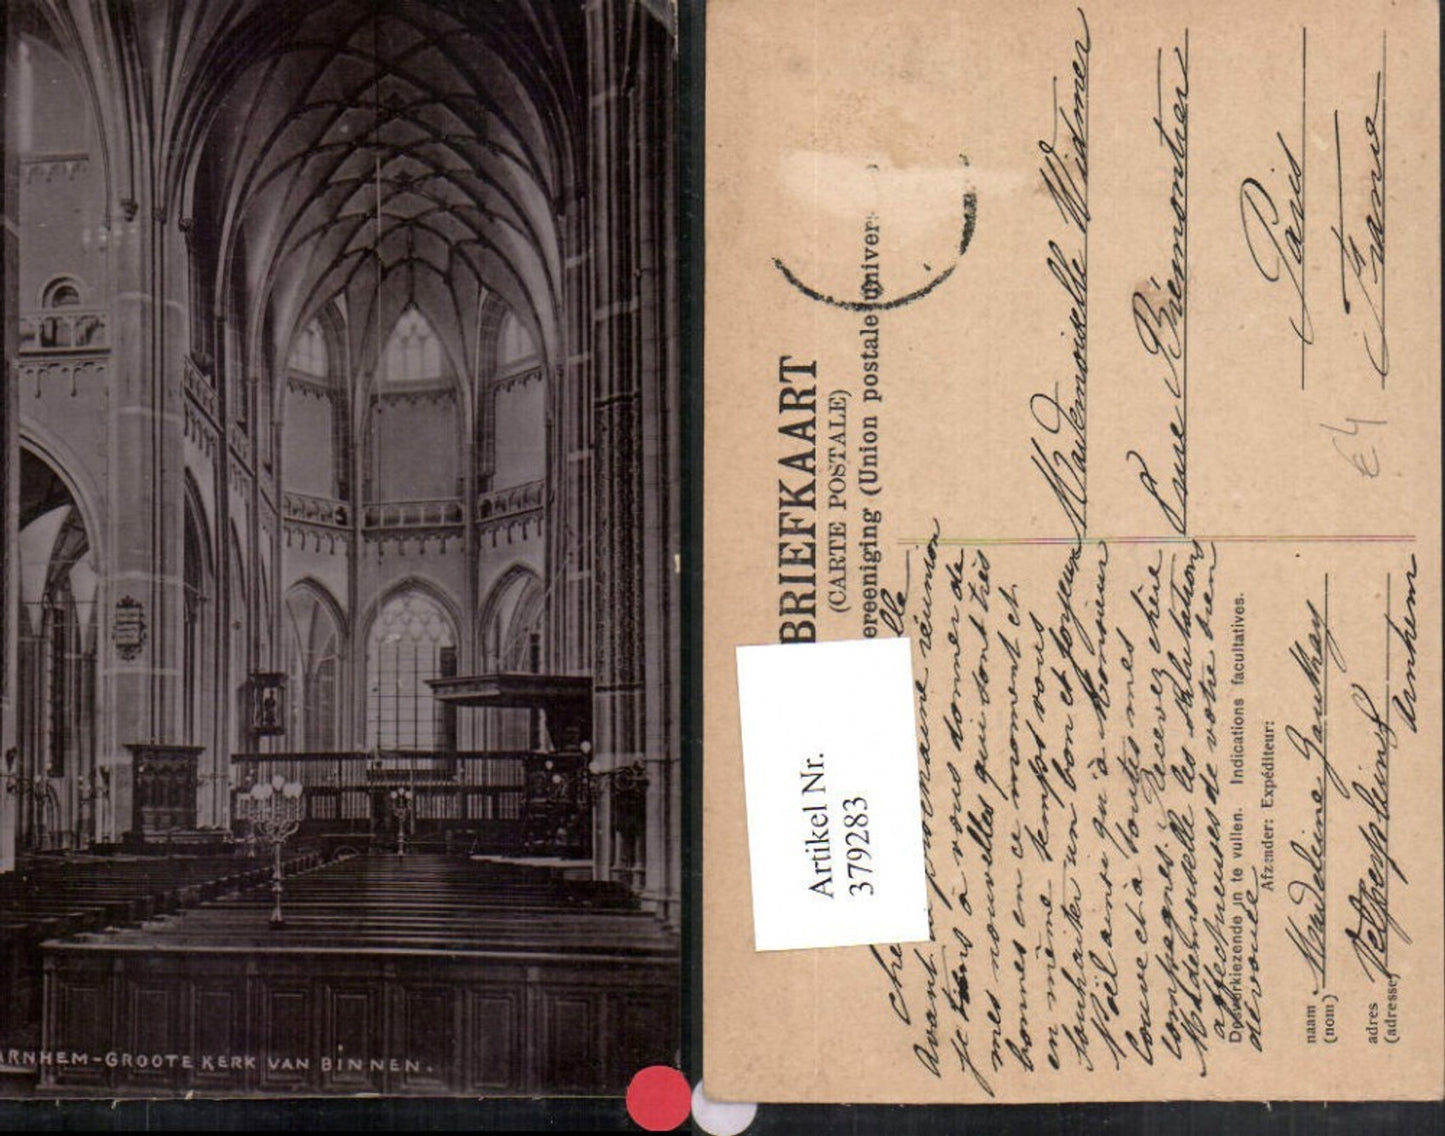 ARNHEM-GROOTE KERK VAN BINNEN.
BRIEFKAART
(CARTE POSTALE)
ereeniging (Union postale univers
Artikel Nr.
379283
Che lle
Avant la prochaine réunion
je tiens à vous donner de
mes nouvelles qui sont très
bonnes en ce moment et
en même temps vous
souhaiter un bon et joyeux
Noël ainsi qu'à Monsieur
Louvet à toutes mes
compagnes. Recevez chère
Mademoiselle les salutations
affectueuses de votre bien
dévouée
Mademoiselle Widmer
Rue Brémontier
Paris
France
€4
Opmerkiezende in te vullen. Indications facultatives.
Afzender: Expéditeur:
naam
(nom)
Madeleine Gauthey
adres
(adresse)
Velperplein 5
Arnhem